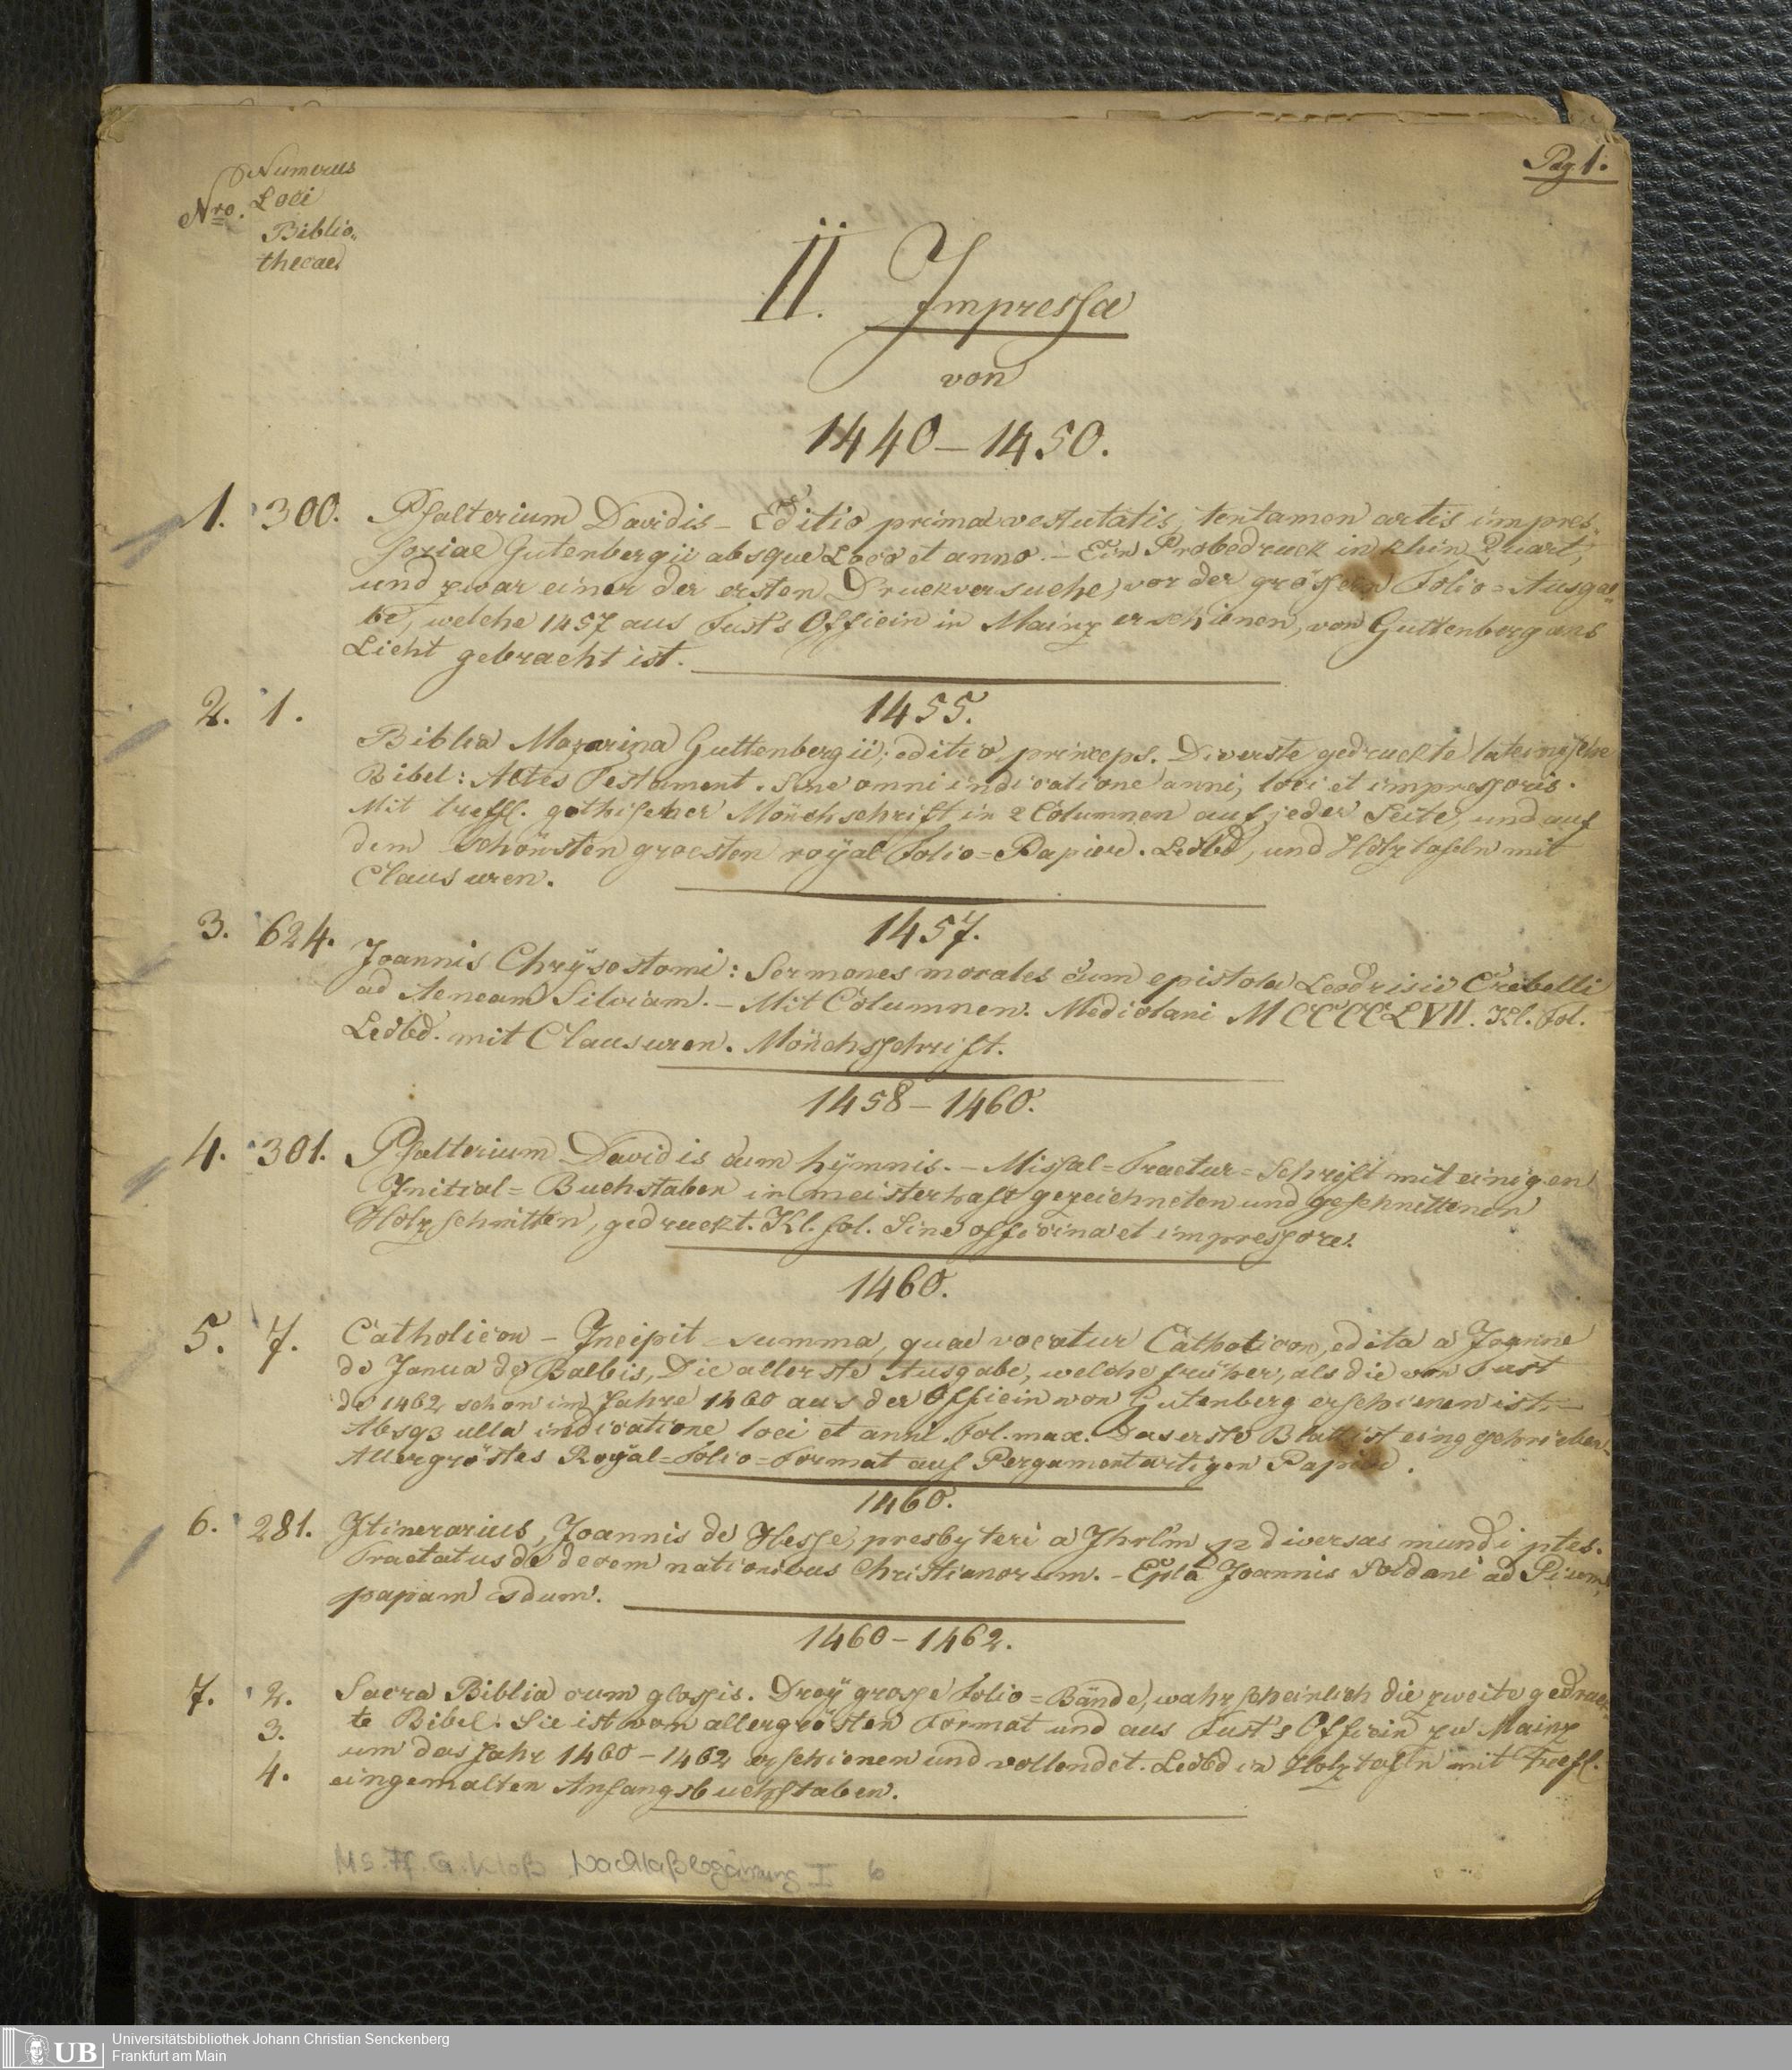 Pag. 1.
Numerus
Nro. Loci
Biblio-
thecae
II. Impressa
von
1440–1450.
1. 300. Psalterium Davidis – Editio prima vetustatis, tentamen artis impres-
soriae Gutenbergii absque Loco et anno. – Ein Probedruck in klein Quart,
und zwar einer der ersten Druckversuche, vor der grössern Folio=Ausga-
be, welche 1457 aus Fust's Officin in Mainz erschienen, von Guttenberg ans
Licht gebracht ist.
1455.
2. 1. Biblia Mazarina Guttenbergii; editio princeps. Die erste gedruckte lateinische
Bibel: Altes Testament. Sine omni indicatione anni, loci et impressoris.
Mit treffl. gothischer Mönchschrift in 2 Columnen auf jeder Seite, und auf
dem schönsten groesten royal Folio=Papier. Ledbd, und Holztafeln mit
Clausuren.
1457.
3. 624. Joannis Chrÿsostomi: Sermones morales cum epistola Leodrisii Crebelli
ad Aeneam Silviam. – Mit Columnen. Mediolani MCCCCLVII. Kl. Fol.
Ledbd. mit Clausuren. Mönchsschrift.
1458–1460.
4. 301. Psalterium Davidis cum hÿmnis. – Missal=Fractur=Schrift mit einigen
Initial=Buchstaben in meisterhaft gezeichneten und geschnittenen
Holzschnitten, gedruckt. Kl. fol. Sine officina et impressore.
1460.
5. 7. Catholicon – Incipit summa, quae vocatur Catholicon, edita a Joanne
de Janua de Balbis, Die allerste Ausgabe, welche früher, als die von Fust
de 1462 schon im Jahre 1460 aus der Officin von Gutenberg erschienen ist. –
Absq3 ulla indicatione loci et anni. Fol. max. Das erste Blatt ist eingeschrieben.
Allergröstes Roÿal=Folio=Format auf Pergamentartigen Papier.
1460.
6. 281. Itinerarius, Joannis de Hesse, presbyteri a Jhrlm p diversas mundi ptes.
Tractatus de decem nationibus Christianorum. – Epla Joannis Soldani ad Pium
papam sdum.
1460–1462.
7. 2. Sacra Biblia cum glossis. Dreÿ grosse Folio=Bände, wahrscheinlich die zweite gedruck-
3. te Bibel. Sie ist vom allergrösten Format und aus Fust's Officin zu Mainz
4. um das Jahr 1460–1462 erschienen und vollendet. Ledbd in Holztafeln mit treffl.
eingemalten Anfangsbuchstaben.
Ms. Ff. G. Kloß Nachlaßergänzung I 6
UB Universitätsbibliothek Johann Christian Senckenberg
Frankfurt am Main